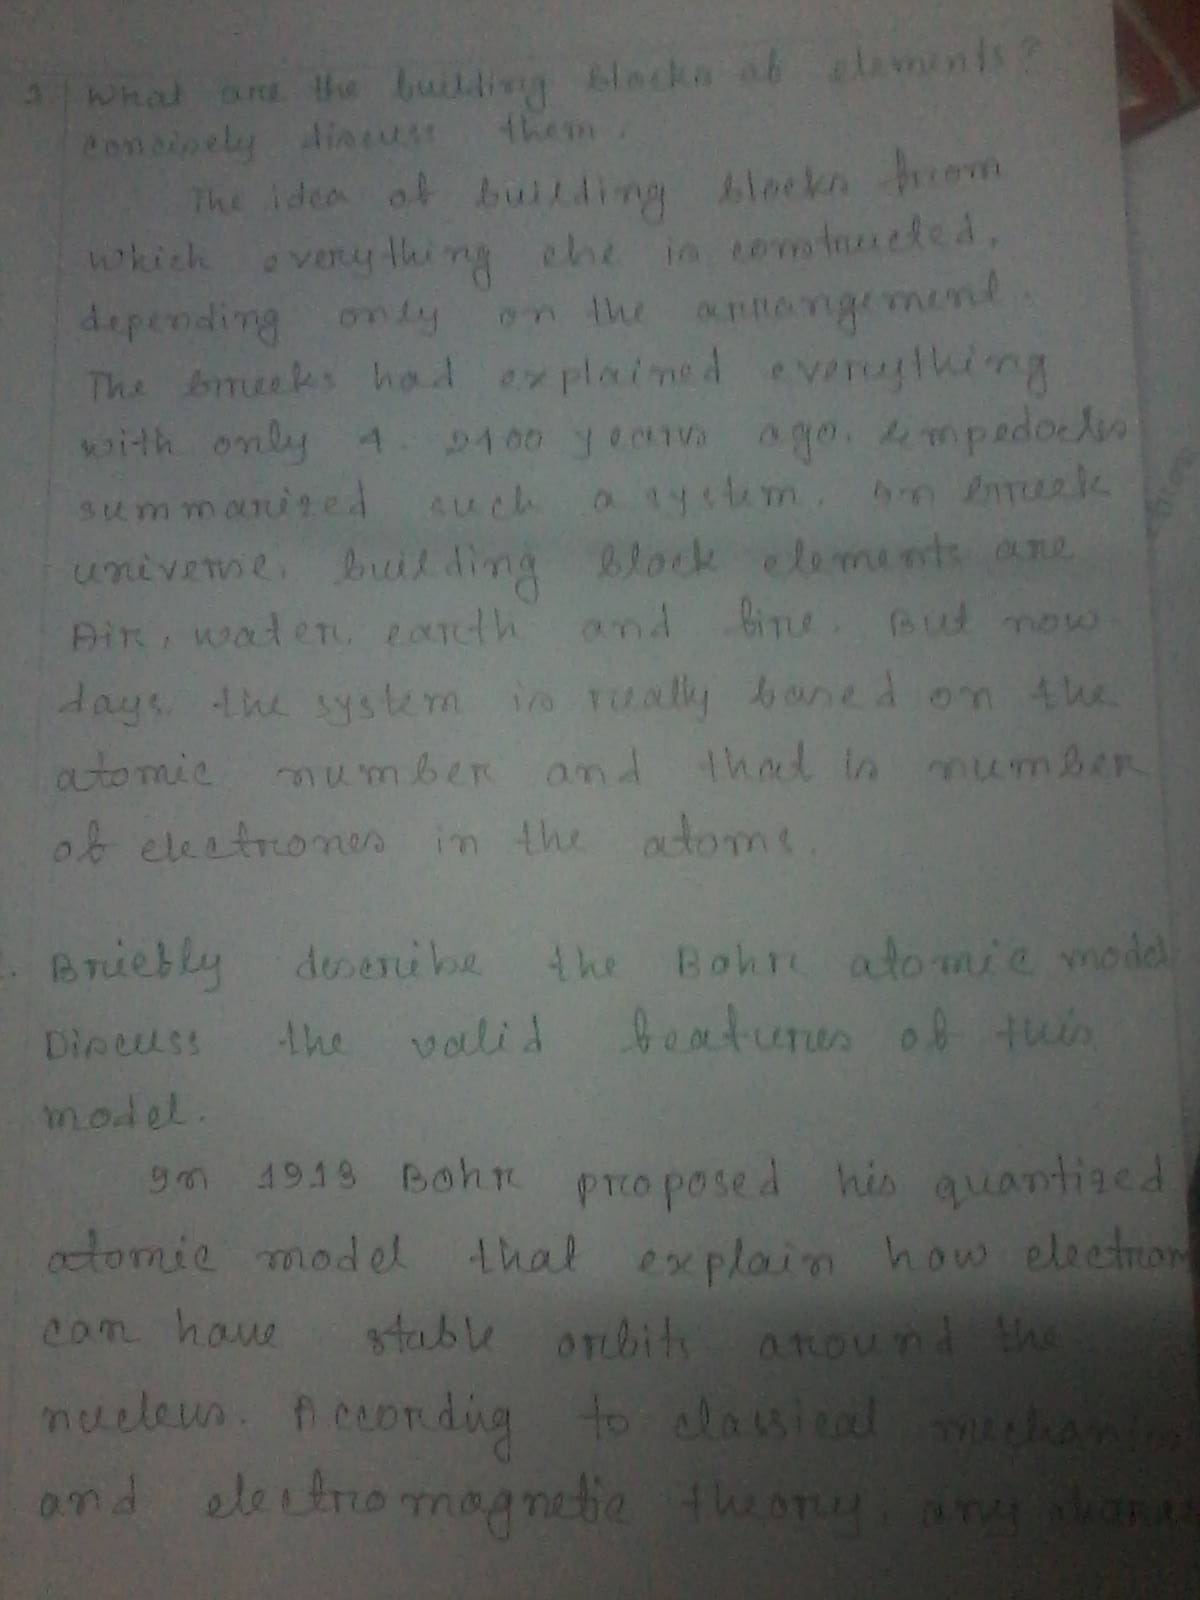 1. What are the building blocks of elements?
concisely discuss them.
The idea of building blocks from
which everything else is constructed,
depending only on the arrangement.
The Greeks had explained everything
with only 4. 2400 years ago. Empedocles
summarized such a system. In Greek
universe, building block elements are
Air, water, earth and fire. But now
days the system is really based on the
atomic number and that is number
of electrones in the atoms.
. Briefly describe the Bohr atomic model
Discuss the valid features of this
model.
In 1913 Bohr proposed his quantized
atomic model that explain how electron
can have stable orbits around the
nucleus. According to classical
and electromagnetic theory, any